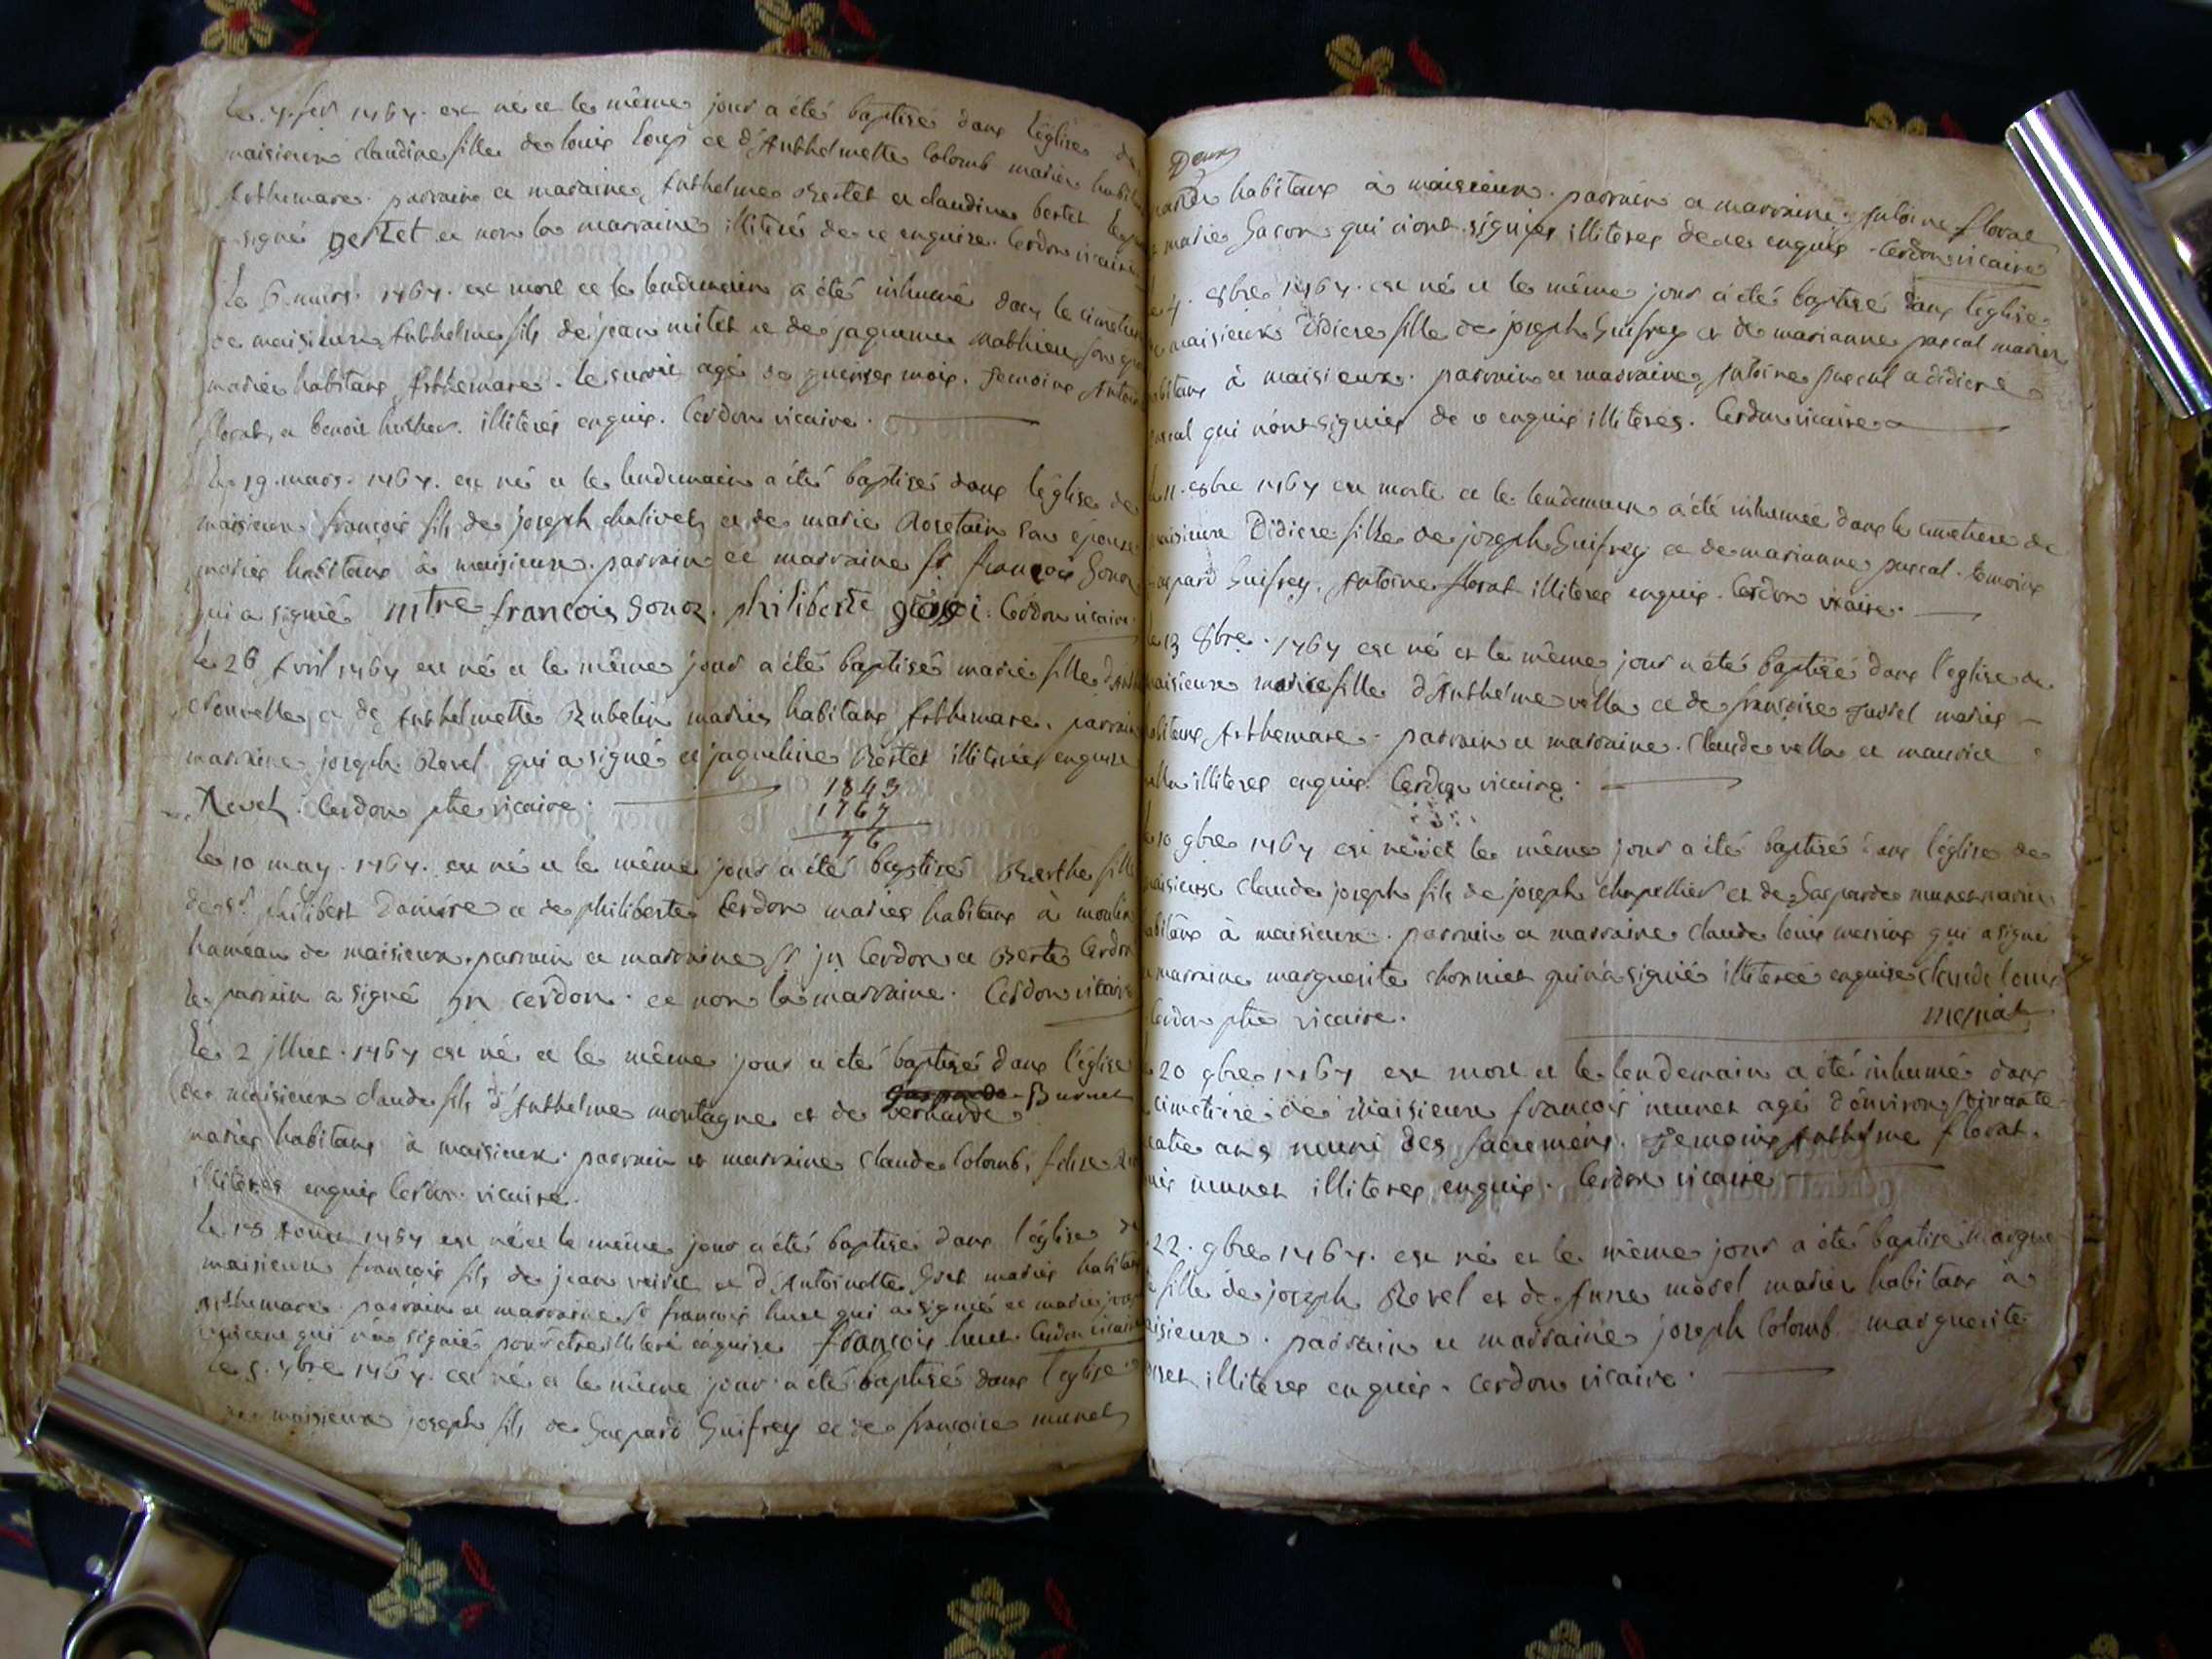 Le 7 fev 1767. est né et le même jour a été baptisé dans l'église de
maisieux claudine fille de louis Loup et d'Anthelmette Colomb mariés habit
Arthemare. parrain et maraine, Anthelme Bertet et claudine bertet le
signé Bertet et non la marraine illiterée de ce enquise. Cerdon vicaire
Le 6 mars. 1767. est mort et le lendemain a été inhumé dans le cimetiere
de maisieux Anthelme fils de jean mitet et de jaqueme Mathieu son
mariés habitans Arthemare. le susdit agé de quinses mois. temoins Antoine
florat, et benoit illiterés enquis. Cerdon vicaire.
Le 19. mars. 1767. est né et le lendemain a été baptisé dans l'église de
maisieux françois fils de joseph chalivet et de marie Rosetain son épouse
mariés habitans à maisieux. parrain et marraine Sr françois Gonoz
qui a signié mtre francois Gonoz. philiberte Cerdon vicaire.
Le 26 Avril 1767 est né et le même jour a été baptisée marie fille
et de Anthelmette Rubelin mariés habitans Arthemare. parrain
marraine joseph Revel qui a signé et jaqueline Bertet illiterée enquise
Revel. Cerdon ptre vicaire.
1843
1767
76
Le 10 may. 1767. est né et le même jour a été baptisée Berthe fille
de Sr. philibert et de philiberte Cerdon mariés habitans à moulin
hameau de maisieux. parrain et marraine Sr jn Cerdon et Berte Cerdon
le parrain a signé jn cerdon. et non la marraine. Cerdon vicaire
Le 2 jllet. 1767 est né et le même jour a été baptisé dans l'église
de maisieux claude fils d'Anthelme montagne et de bernarde Burnet
mariés habitans à maisieux. parrain et marraine Claude Colomb,
illiterés enquis Cerdon vicaire.
Le 18 Aout 1767 est né et le même jour a été baptisé dans l'église de
maisieux françois fils de jean et d'Antoinette mariés habitans
Arthemare. parrain et marraine Sr françois huet qui a signié et marie
qui n'a signié pour être illiteré enquise françois huet. Cerdon vicaire
Le 5. 7bre 1767. est né et le même jour a été baptisé dans l'eglise
de maisieux joseph fils de Gaspard Guifrey et de françoise munet
Deux
mariés habitans à maisieux. parrain et marraine, Antoine florat
et marie Gacon qui n'ont signies illiteres de ce enquis. Cerdon vicaire
Le 4. 8bre 1767. est né et le même jour a été baptisé dans l'église
de maisieux Didiere fille de joseph Guifrey et de marianne pascal mariés
habitans à maisieux. parrain et marraine, Antoine pascal et didiere
pascal qui n'ont signies de ce enquis illiterés. Cerdon vicaire
Le 11. 8bre 1767 est morte et le lendemain a été inhumée dans le cimetiere de
maisieux Didiere fille de joseph Guifrey et de marianne pascal. temoins
Gaspard Guifrey, Antoine florat illiteres enquis. Cerdon vicaire.
Le 13 8bre. 1767 est né et le même jour a été baptisée dans l'eglise de
maisieux marie fille d'Anthelme vella et de françoise mariés
habitans Arthemare. parrain et marraine. Claude vella et maurice
vella illiteres enquis. Cerdon vicaire.
Le 10 9bre 1767 est né et le même jour a été baptisé dans l'église de
maisieux Claude joseph fils de joseph chapellier et de Gasparde munet mariés
habitans à maisieux. parrain et marraine claude louis qui a signé
marraine marguerite qui n'a signié illiterée enquise claude louis
Cerdon ptre vicaire.
20 9bre 1767 est mort et le lendemain a été inhumé dans
cimetiere de maisieux françois munet agé d'environ soixante
quatre ans muni des sacremens. Temoins Anthelme florat.
munet illiteres enquis. Cerdon vicaire
22. 9bre 1767. est né et le même jour a été baptisé
fille de joseph Revel et de Anne morel mariés habitans à
maisieux. parrain et marraine joseph Colomb marguerite
illiteres enquis. Cerdon vicaire.